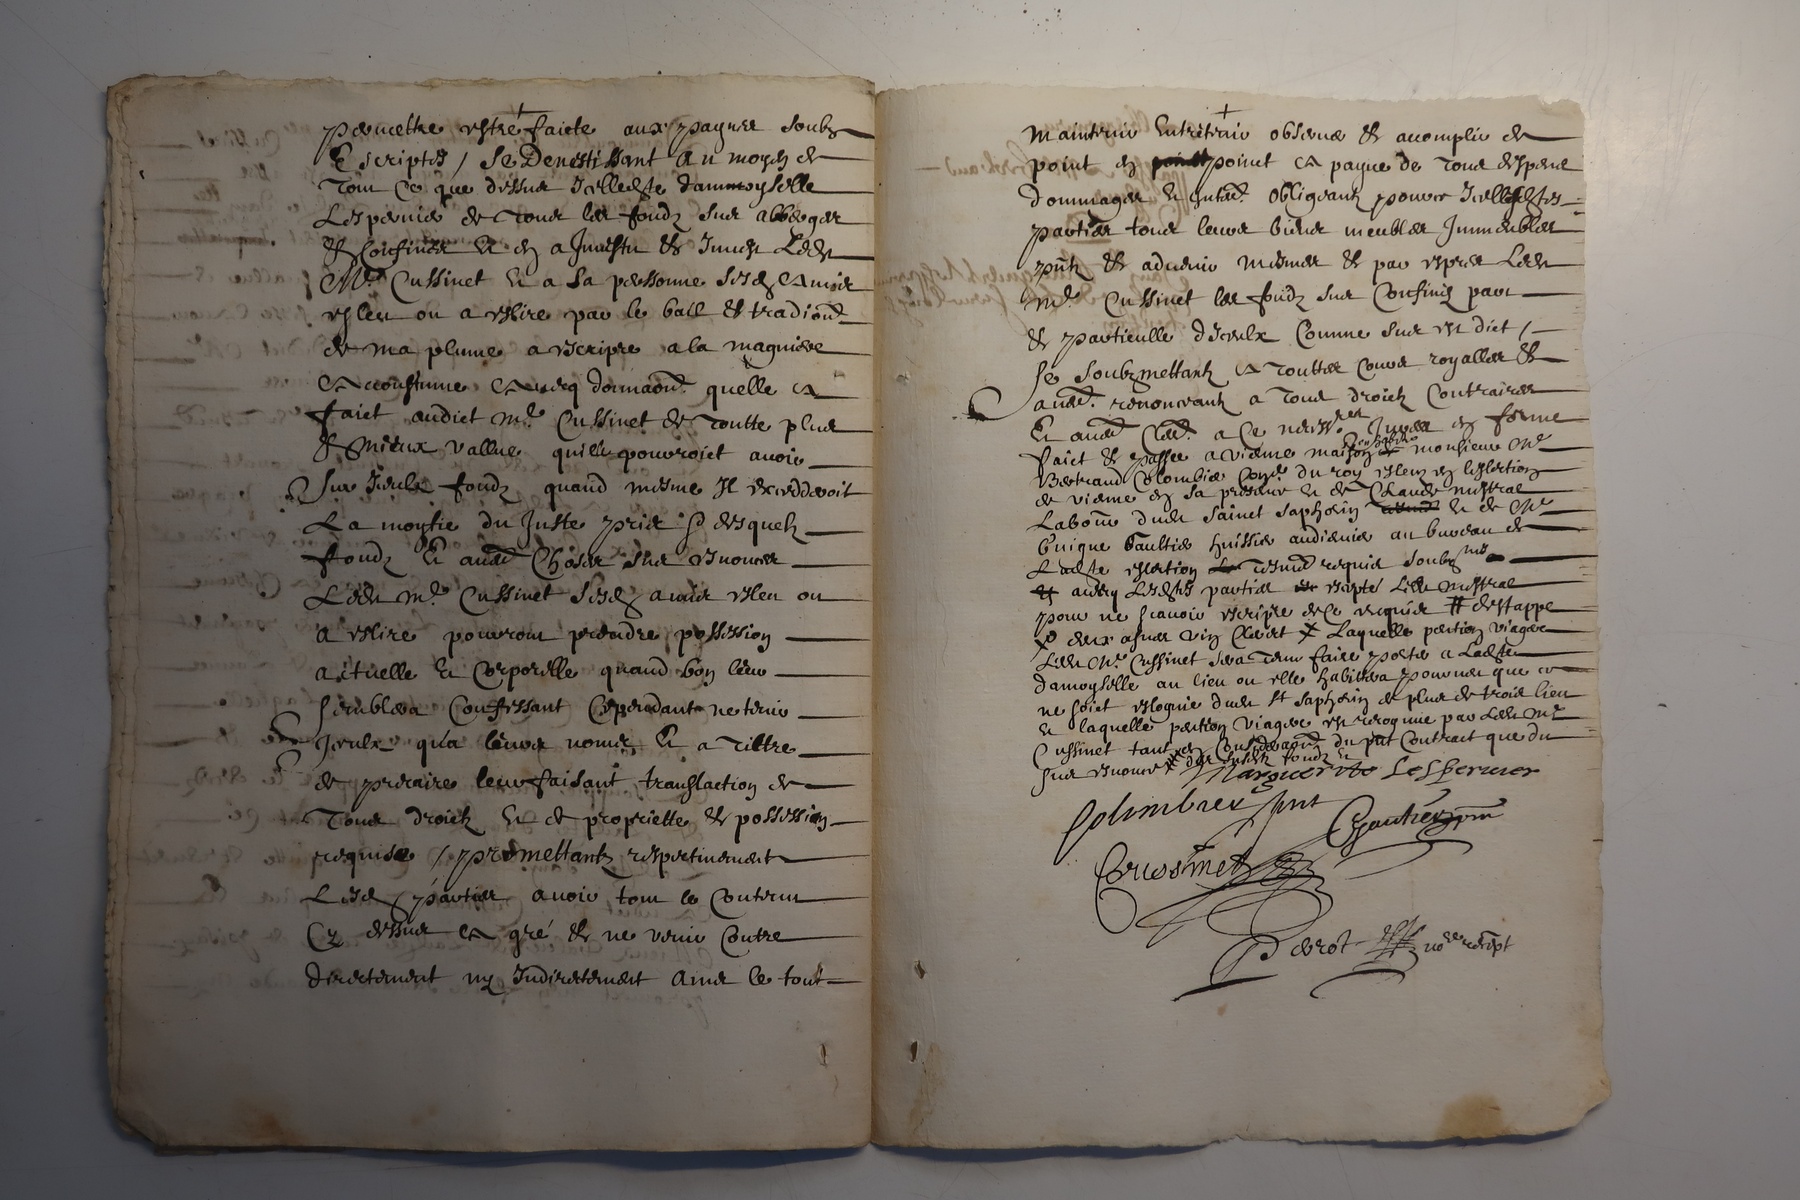 permettre estre faicte aux paynes soubz
Escriptes / Se Devestissant au moyen de
tout ce que dessus Icelle dte dammoyselle
Lespervier de tous les fondz sus abbergés
& Confinés Et en a Investu & Invest Ledt
Me Cussinet Et a sa personne sesd amis
esleu ou a eslire par le bail & tradiond
de ma plume a escripre a la magniere
accoustumé avecq donnaond quelle a
faict audict Me Cussinet de toutte plus
& mieux vallue quilz pourroict avoir
Sur Iceulx fondz quand mesme Il excedderoit
La moytie du Juste pris desquelz
fondz Et aues Choses sus esnoncés
Ledt Me Cussinet sesd amis esleu ou
a eslire pourront prendre possession
actuelle et Corporelle quand bon leur
semblera Confessant Cependant ne tenir
Iceulx qu'a leurs noms Et a tiltre
de precaire leur faisant translaction de
Tous droictz Et de proprietté & possession
requise / promettantz respectivement
Lesd parties avoir tout le Contenu
Cy dessus a gré & ne venir Contre
directement ny Indirectement ains le tout
maintenir Entretenir observer & acomplir de
point en point a payne de tous despens
dommages Et Intes. obligeantz pour ce Icelles dtes
parties tous leurs biens meubles Immeubles
pntz & advenir mesmes & par expres Ledt
Me Cussinet les fondz sus Confinés part
& particulle d'Iceulx Comme sus est dict /
se soubzmettantz a touttes Cours royalles &
aues. renonceantz a tous droictz Contraires
Et aues Cles. a ce necessres Jurée en forme
faict & passé a vienne maison de monsieur Me
Bertrand Colombier Coner du roy esleu en leslection
de vienne en sa presence Et de Claude mistral
Labour dudt Sainct Saphorin Et de Me
Gaultier huissier audiencier au bureau de
Ladte eslection tesmoins requis soubznes
avecq Lesdtes parties excepté Ledt Mistral
pour ne sçavoir escripre de ce requis # destappe
deux asnés vin Clairet X Laquelle pention viagere
Ledt Me Cussinet sera tenu faire porter a Ladte
damoyselle au lieu ou elle habitera pourveu que ce
ne soict esloigné dudt St Saphorin de plus de trois lieu
Et laquelle pention viagere est recogneue par Ledt Me
Cussinet tant en Consideraond du pnt Contract que du
sus esnoncé X des susdtz fondz
Marguerite Lespervier
Colombier pnt Gaultier pnt
Cussinet
Perrot nore recept